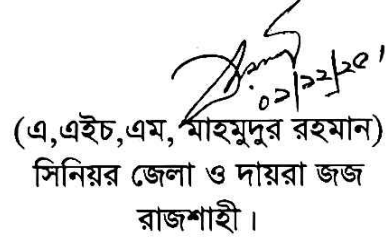 ০১/১২/২৫।
(এ,এইচ,এম, মাহমুদুর রহমান)
সিনিয়র জেলা ও দায়রা জজ
রাজশাহী।